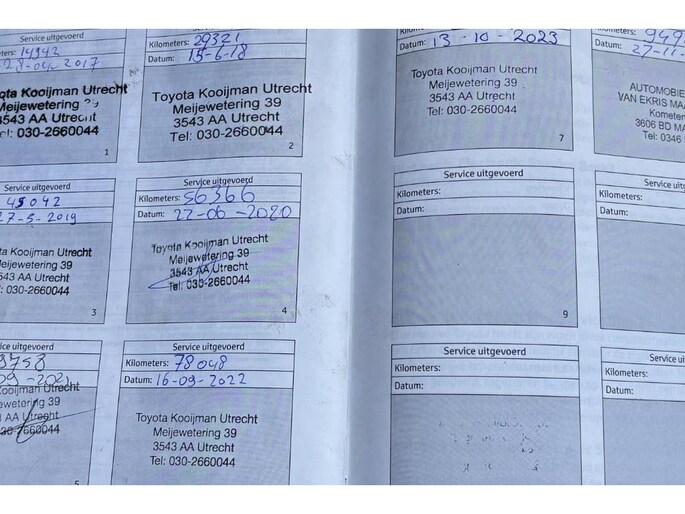 Service uitgevoerd
14942
28-04-2017
Toyota Kooijman Utrecht
Meijewetering 39
3543 AA Utrecht
Tel: 030-2660044
1
Service uitgevoerd
Kilometers: 29321
Datum: 15-6-18
Toyota Kooijman Utrecht
Meijewetering 39
3543 AA Utrecht
Tel: 030-2660044
2
Service uitgevoerd
45042
27-5-2019
Toyota Kooijman Utrecht
Meijewetering 39
3543 AA Utrecht
: 030-2660044
3
Service uitgevoerd
Kilometers: 56366
Datum: 22-06-2020
Toyota Kooijman Utrecht
Meijewetering 39
3543 AA Utrecht
Tel: 030-2660044
4
Service uitgevoerd
Kooijman Utrecht
wetering 39
AA Utrecht
5
Service uitgevoerd
Kilometers: 78048
Datum: 16-09-2022
Toyota Kooijman Utrecht
Meijewetering 39
3543 AA Utrecht
Tel: 030-2660044
Kilometers:
Datum: 13-10-2023
Toyota Kooijman Utrecht
Meijewetering 39
3543 AA Utrecht
Tel: 030-2660044
7
Kilometers:
Datum: 27-11-
AUTOMOBIE
VAN EKRIS MAA
Kometen
3606 BD MA
Tel: 0346
Service uitgevoerd
Kilometers:
Datum:
9
Service
Kilometers:
Datum:
Service uitgevoerd
Kilometers:
Datum:
Service
Kilometers:
Datum: